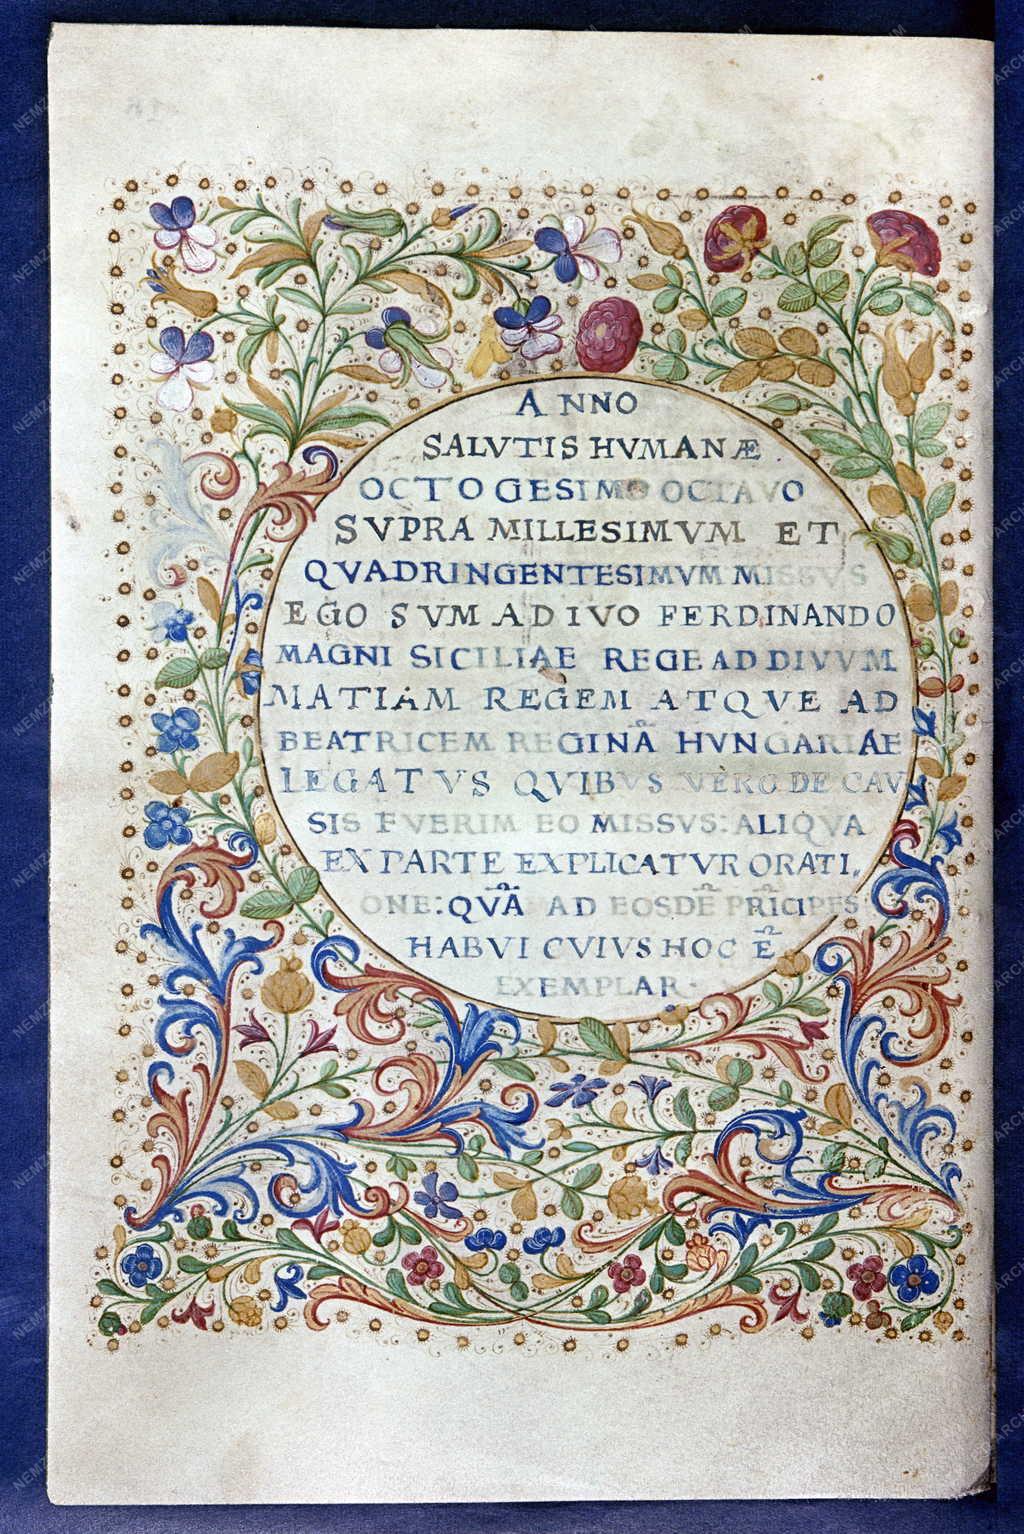 ANNO
SALVTIS HVMANÆ
OCTOGESIMO OCTAVO
SVPRA MILLESIMVM ET
QVADRINGENTESIMVM MISSVS
EGO SVM A DIVO FERDINANDO
MAGNI SICILIAE REGE AD DIVVM
MATIAM REGEM ATQVE AD
BEATRICEM REGINÃ HVNGARIAE
LEGATVS QVIBVS VERO DE CAV
SIS FVERIM EO MISSVS: ALIQVA
EX PARTE EXPLICATVR ORATI,
ONE: QVÃ AD EOSDẼ PRĨCIPES
HABVI CVIVS HOC Ẽ
EXEMPLAR·